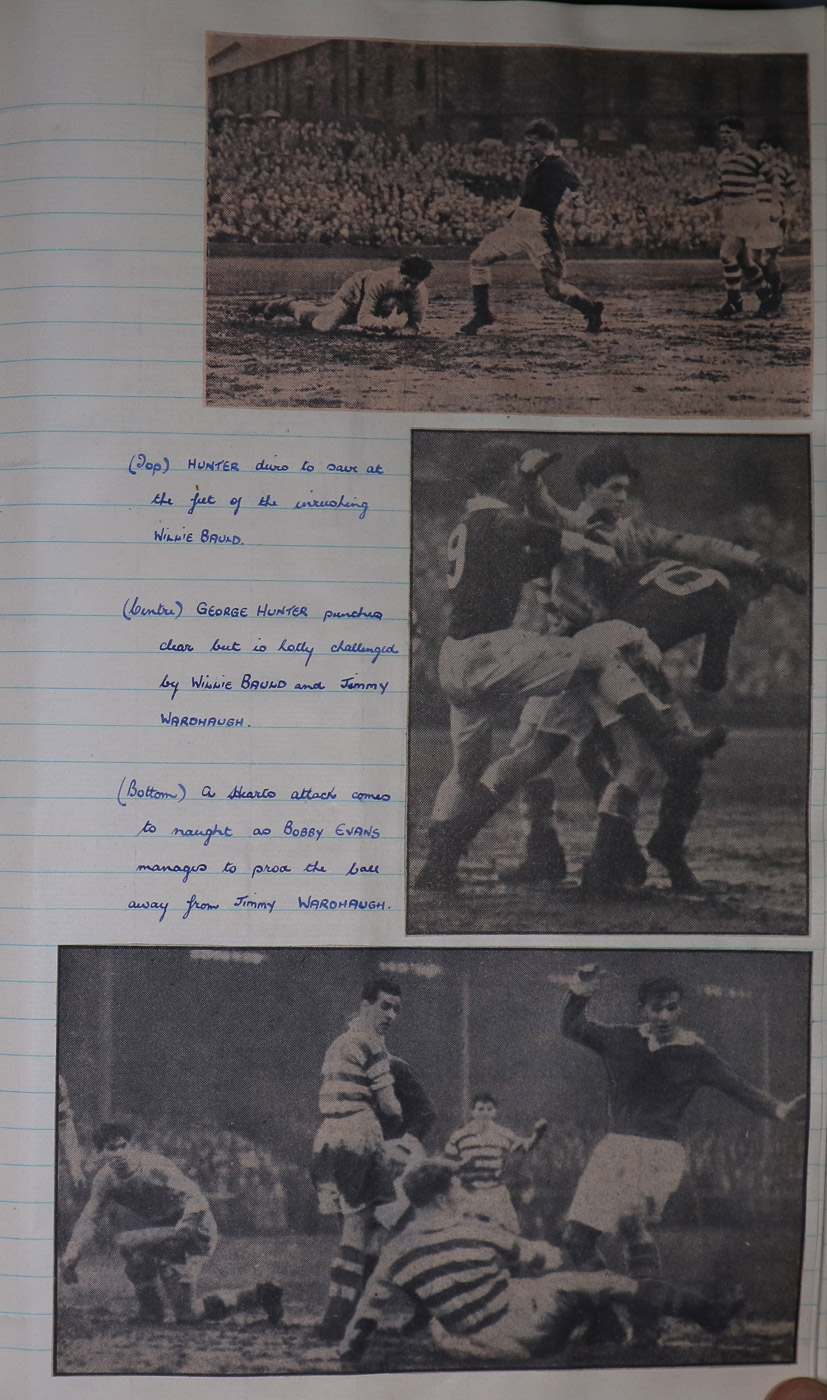 (Top) HUNTER dives to save at
the feet of the inrushing
WILLIE BAULD.
(Centre) GEORGE HUNTER punches
clear but is hotly challenged
by WILLIE BAULD and Jimmy
WARDHAUGH.
(Bottom) A Hearts attack comes
to naught as BOBBY EVANS
manages to prod the ball
away from Jimmy WARDHAUGH.
9
10